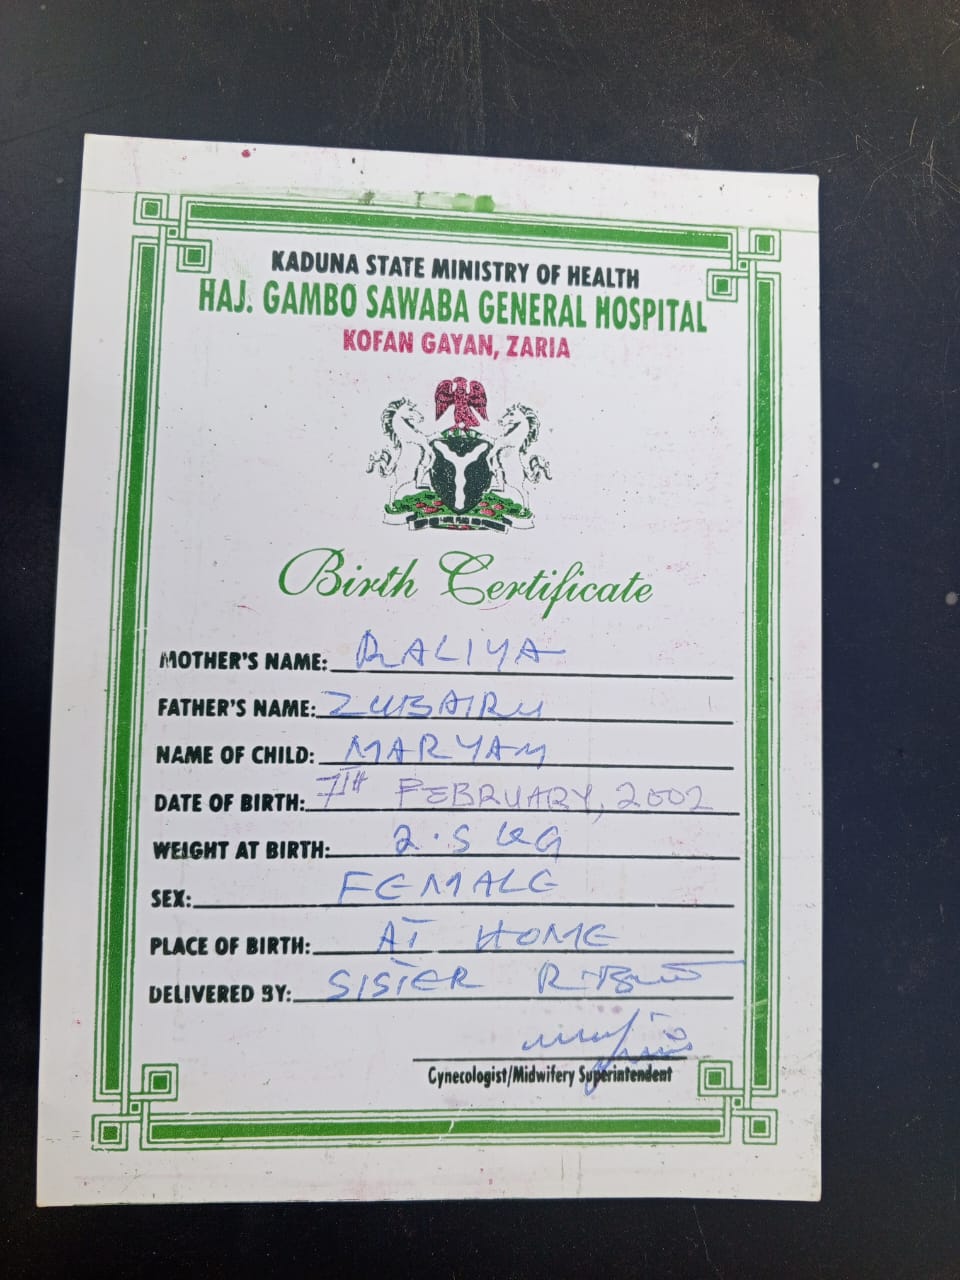 KADUNA STATE MINISTRY OF HEALTH
HAJ. GAMBO SAWABA GENERAL HOSPITAL
KOFAN GAYAN, ZARIA
Birth Certificate
MOTHER'S NAME: RALIYA
FATHER'S NAME: ZUBAIRU
NAME OF CHILD: MARYAM
DATE OF BIRTH: 7TH FEBRUARY, 2002
WEIGHT AT BIRTH: 2.5 KG
SEX: FEMALE
PLACE OF BIRTH: AT HOME
DELIVERED BY: SISTER
Gynecologist/Midwifery Superintendent